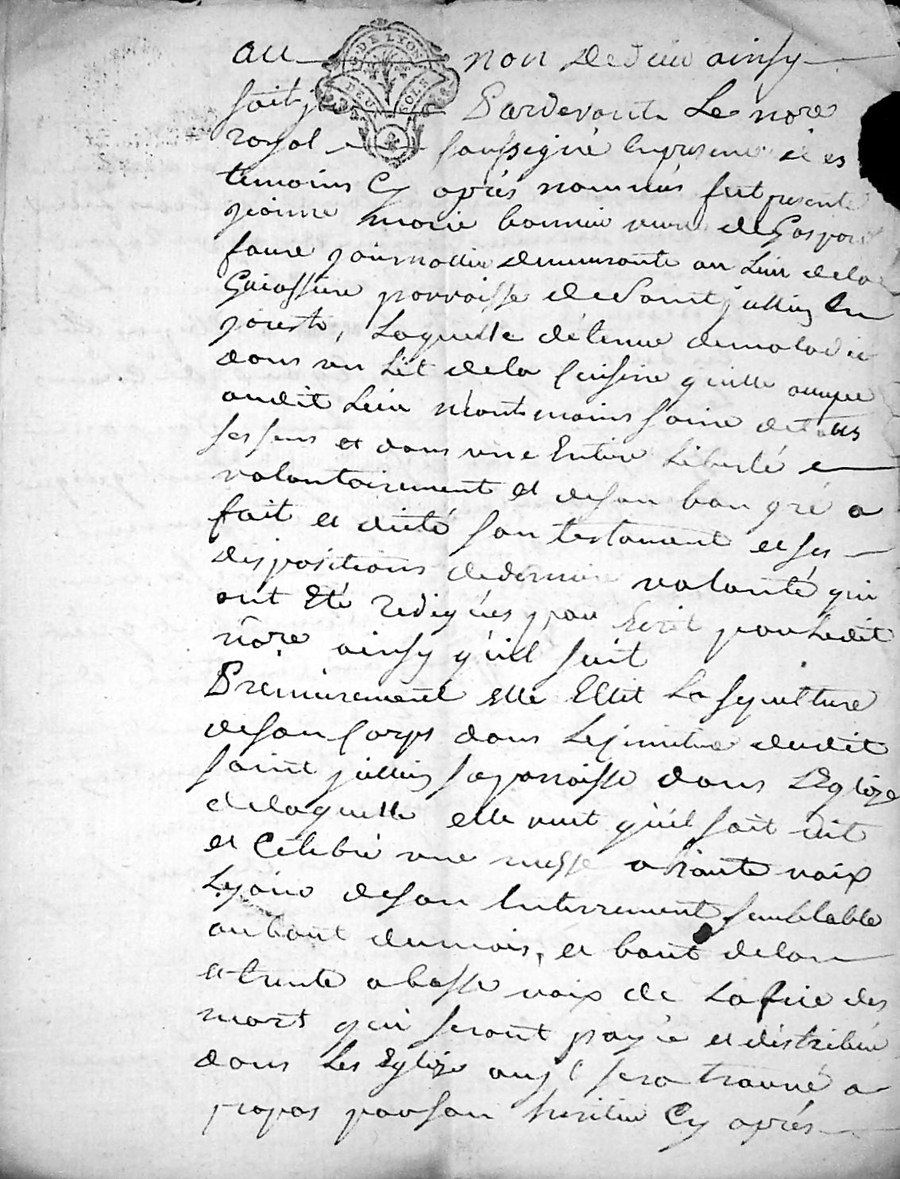 au nom De dieu ainsy
soit j Pardevant Le nore
royal soussigné En presence des
temoins Cy après nommés fut presente
jeanne marie bonnier veuve de Gaspard
faure journallier demeurante au Lieu de la
parroisse de Saint jullien En
jarest, Laquelle détenue de maladie
dans un Lit de la Cuisine qu'elle occupe
audit Lieu Neantmoins saine de tous
ses sens et dans une Entiere Liberté
volontairement et de son bon gré a
fait et dicté son testament et ses
dispositions de derniere volonté qui
ont Eté redigées par Ecrit par Ledit
nore ainsy qu'il suit
Premierement elle Ellit La sepulture
de son Corps dans Le cimetiere dudit
saint jullien sa parroisse dans L'Eglize
de laquelle elle veut qu'il soit dit
et Célébré une messe a haute voix
Le jour de son Enterrement semblable
au bout du mois, et bout de l'an
et trente a basse voix de La ferie des
mort qui seront payée et distribuée
dans Les Eglize ou il sera trouvé a
propos par son heritier Cy après
DE LYON
DEUX SOLS